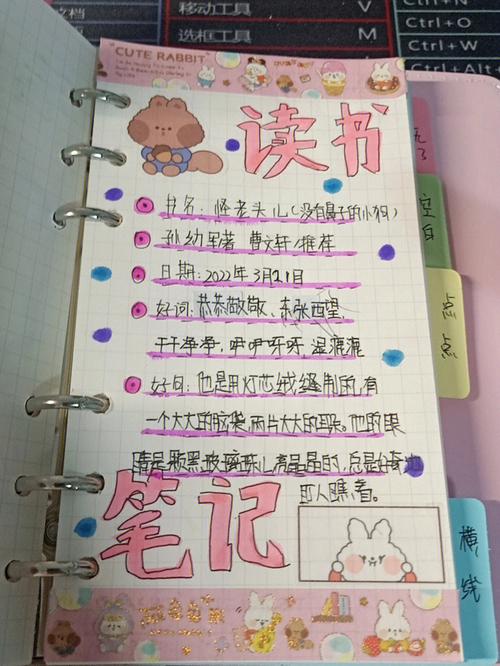 文档
移动工具 V
选框工具 M
Ctrl+N
Ctrl+O
Ctrl+W
Ctrl+Alt+
"CUTE RABBIT"
读书
书名:怪老头儿(没有鼻子的小狗)
孙幼军著 曹文轩/推荐
日期:2022年3月21日
好词:恭恭敬敬、东张西望,
干干净净,咿咿呀呀,湿漉漉
好句:他是用灯芯绒缝制的,有
一个大大的脑袋,两片大大的耳朵。他的眼
睛是颗黑玻璃珠儿亮晶晶的,总是好奇地
盯人瞧着。
笔记
空白
点点
横线